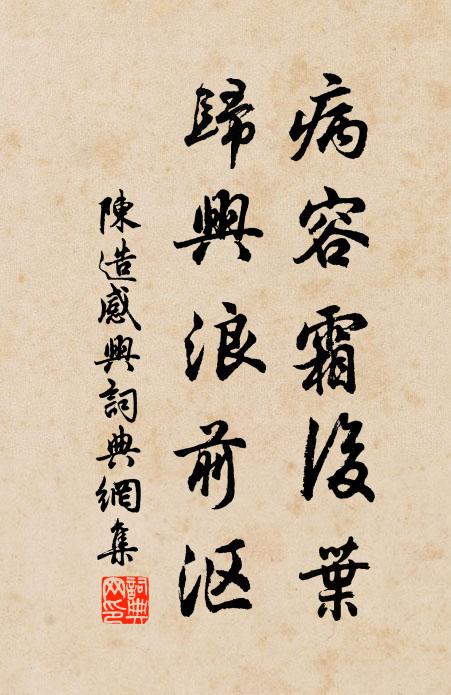 病容霜後葉
歸興浪前沤
陳造感興詞典網集
詞典网印